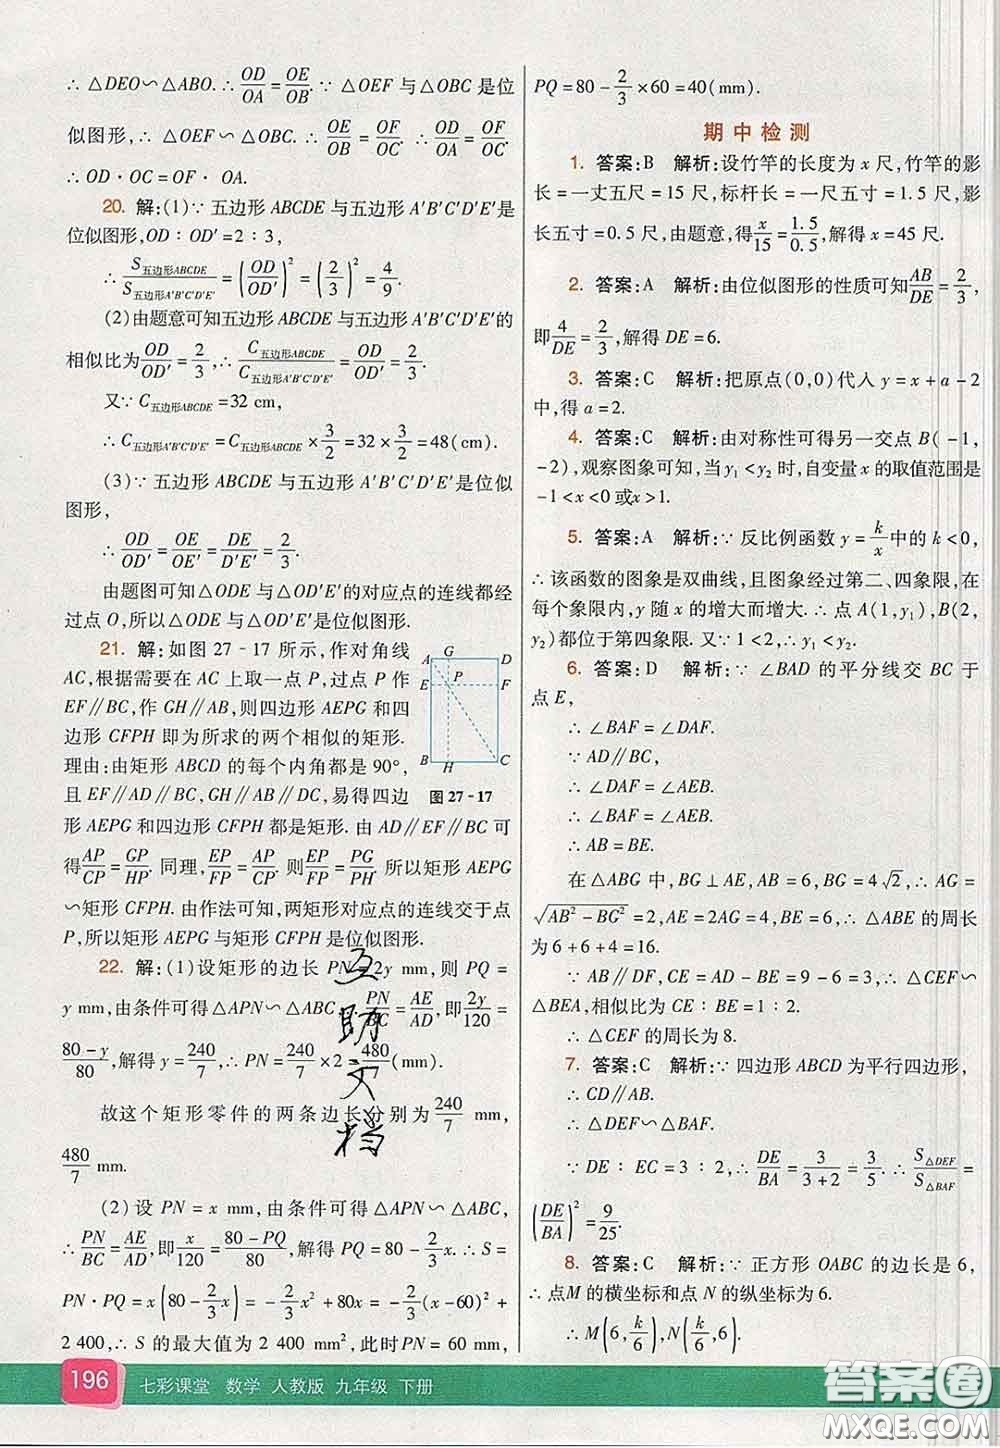 ∴ △DEO∽△ABO. ∴ OD/OA = OE/OB. ∵ △OEF 与△OBC 是位
似图形,∴ △OEF∽△OBC. ∴ OE/OB = OF/OC. ∴ OD/OA = OF/OC.
∴ OD·OC = OF·OA.
20. 解:(1)∵ 五边形 ABCDE 与五边形 A′B′C′D′E′是
位似图形,OD∶OD′=2∶3,
∴ S五边形ABCDE/S五边形A′B′C′D′E′ = (OD/OD′)² = (2/3)² = 4/9.
(2)由题意可知五边形 ABCDE 与五边形 A′B′C′D′E′的
相似比为 OD/OD′ = 2/3,∴ C五边形ABCDE/C五边形A′B′C′D′E′ = OD/OD′ = 2/3.
又∵ C五边形ABCDE = 32 cm,
∴ C五边形A′B′C′D′E′ = C五边形ABCDE × 3/2 = 32 × 3/2 = 48(cm).
(3)∵ 五边形 ABCDE 与五边形 A′B′C′D′E′是位似
图形,
∴ OD/OD′ = OE/OE′ = DE/D′E′ = 2/3.
由题图可知△ODE 与△OD′E′的对应点的连线都经
过点 O,所以△ODE 与△OD′E′是位似图形.
21. 解:如图 27-17 所示,作对角线
AC,根据需要在 AC 上取一点 P,过点 P 作
EF∥BC,作 GH∥AB,则四边形 AEPG 和四
边形 CFPH 即为所求的两个相似的矩形.
理由:由矩形 ABCD 的每个内角都是 90°,
且 EF∥AD∥BC,GH∥AB∥DC,易得四边
形 AEPG 和四边形 CFPH 都是矩形. 由 AD∥EF∥BC 可
得 AP/CP = GP/HP. 同理, EP/FP = AP/CP. 则 EP/FP = PG/PH. 所以矩形 AEPG
∽矩形 CFPH. 由作法可知,两矩形对应点的连线交于点
P,所以矩形 AEPG 与矩形 CFPH 是位似图形.
A G D
E P F
B H C
图 27-17
22. 解:(1)设矩形的边长 PN = 2y mm,则 PQ =
y mm,由条件可得△APN∽△ABC, PN/BC = AE/AD,即 2y/120 =
(80-y)/80,解得 y = 240/7,∴ PN = 240/7 × 2 = 480/7(mm).
故这个矩形零件的两条边长分别为 240/7 mm,
480/7 mm.
(2)设 PN = x mm,由条件可得△APN∽△ABC,
∴ PN/BC = AE/AD,即 x/120 = (80-PQ)/80,解得 PQ = 80 - 2/3 x. ∴ S =
PN·PQ = x(80 - 2/3 x) = -2/3 x² + 80x = -2/3(x-60)² +
2 400,∴ S 的最大值为 2 400 mm²,此时 PN = 60 mm,
互助文档
PQ = 80 - 2/3 × 60 = 40(mm).
期中检测
1. 答案:B 解析:设竹竿的长度为 x 尺,竹竿的影
长=一丈五尺=15 尺,标杆长=一尺五寸=1.5 尺,影
长五寸=0.5 尺,由题意,得 x/15 = 1.5/0.5,解得 x=45 尺.
2. 答案:A 解析:由位似图形的性质可知 AB/DE = 2/3,
即 4/DE = 2/3,解得 DE = 6.
3. 答案:C 解析:把原点(0,0)代入 y = x + a - 2
中,得 a = 2.
4. 答案:C 解析:由对称性可得另一交点 B(-1,
-2),观察图象可知,当 y₁<y₂ 时,自变量 x 的取值范围是
-1<x<0 或x>1.
5. 答案:A 解析:∵ 反比例函数 y = k/x 中的 k<0,
∴ 该函数的图象是双曲线,且图象经过第二、四象限,在
每个象限内,y 随 x 的增大而增大. ∴ 点 A(1,y₁),B(2,
y₂)都位于第四象限. 又∵ 1<2,∴ y₁<y₂.
6. 答案:D 解析:∵ ∠BAD 的平分线交 BC 于
点 E,
∴ ∠BAF = ∠DAF.
∵ AD∥BC,
∴ ∠DAF = ∠AEB.
∴ ∠BAF = ∠AEB.
∴ AB = BE.
在△ABG 中,BG⊥AE,AB = 6,BG = 4√2,∴ AG =
√(AB² - BG²) = 2,AE = 2AG = 4. ∴ △ABE 的周长
为 6+6+4=16.
∵ AB∥DF,CE = AD - BE = 9 - 6 = 3,∴ △CEF∽
△BEA,相似比为 CE∶BE = 1∶2.
∴ △CEF 的周长为 8.
7. 答案:C 解析:∵ 四边形 ABCD 为平行四边形,
∴ CD∥AB.
∴ △DEF∽△BAF.
∵ DE∶EC = 3∶2,∴ DE/BA = 3/(3+2) = 3/5. ∴ S△DEF/S△BAF =
(DE/BA)² = 9/25.
8. 答案:C 解析:∵ 正方形 OABC 的边长是 6,
∴ 点M 的横坐标和点 N 的纵坐标为 6.
∴ M(6,k/6),N(k/6,6).
196 七彩课堂 数学 人教版 九年级 下册
答案圈
MXQE.COM